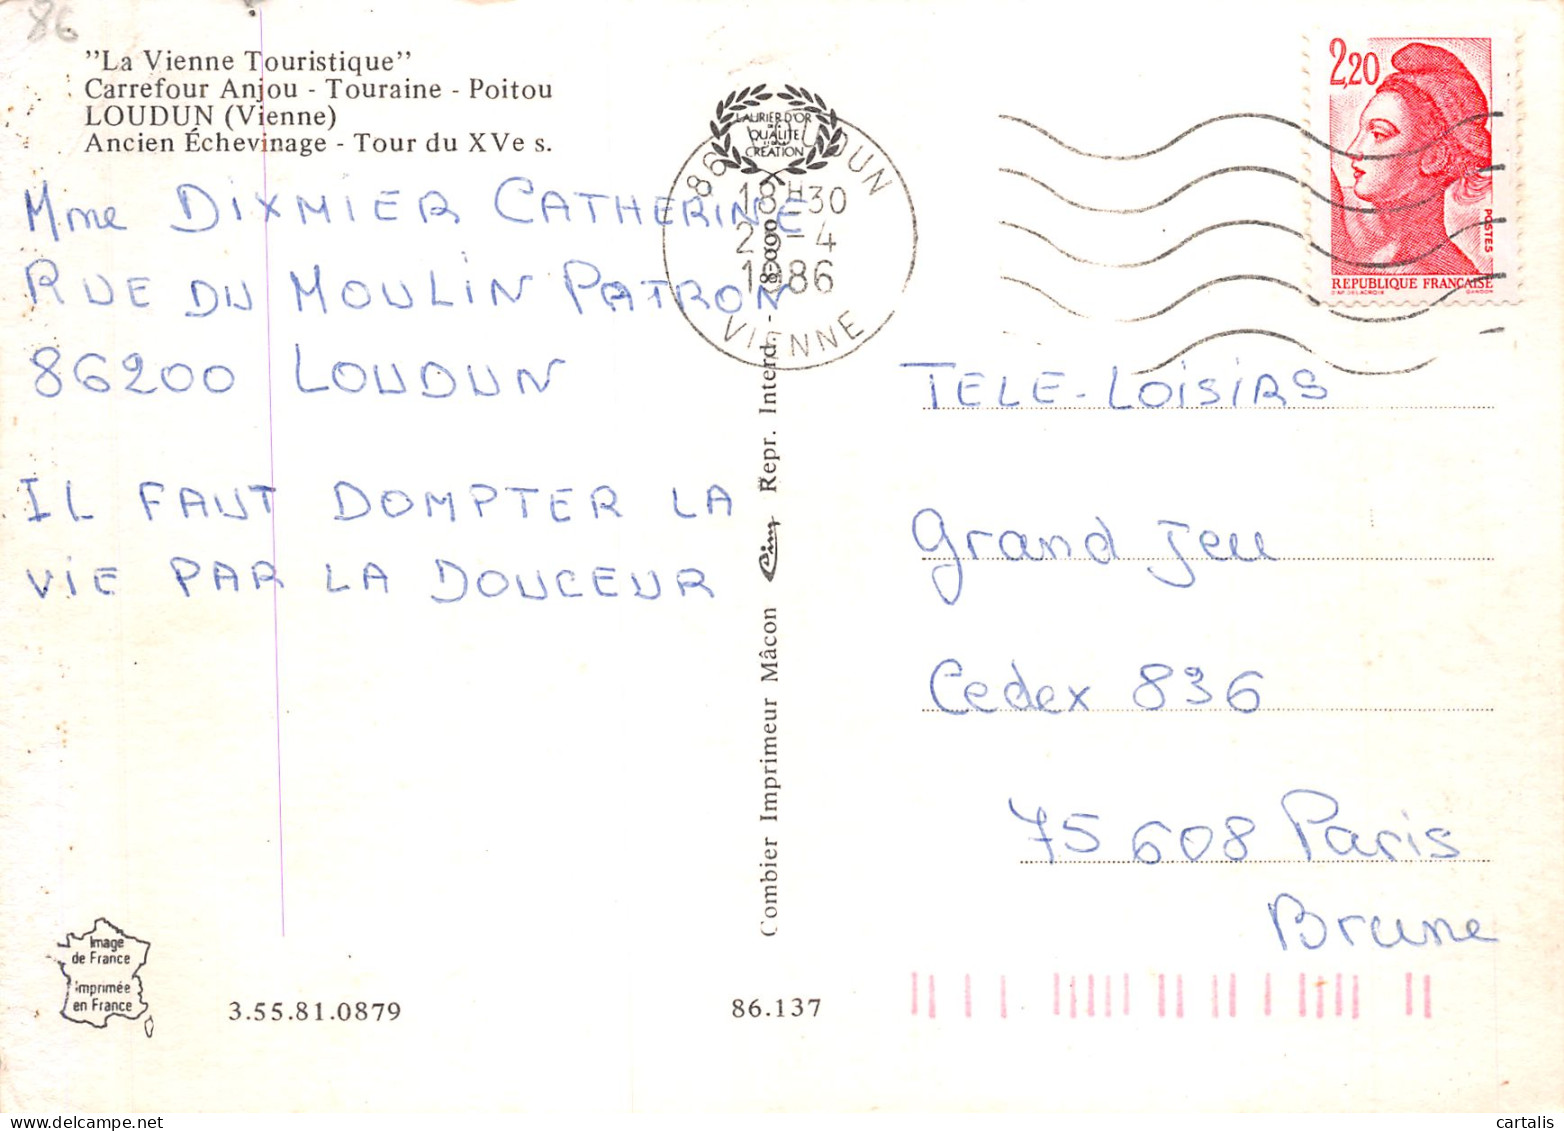 86
"La Vienne Touristique"
Carrefour Anjou - Touraine - Poitou
LOUDUN (Vienne)
Ancien Échevinage - Tour du XVe s.
Mme DIXMIER CATHERINE
RUE DU MOULIN PATRON
86200 LOUDUN
IL FAUT DOMPTER LA
VIE PAR LA DOUCEUR
Image
de France
imprimée
en France
3.55.81.0879
86.137
Combier Imprimeur Mâcon Cim Repr. Interd. -
LAURIER D'OR
QUALITÉ
CRÉATION
86 LOUDUN
18H30
2 -4
1986
VIENNE
2,20
POSTES
REPUBLIQUE FRANÇAISE
D'AP. DELACROIX GANDON
TELE-LOISIRS
Grand Jeu
Cedex 836
75608 Paris
Brune
cartalis